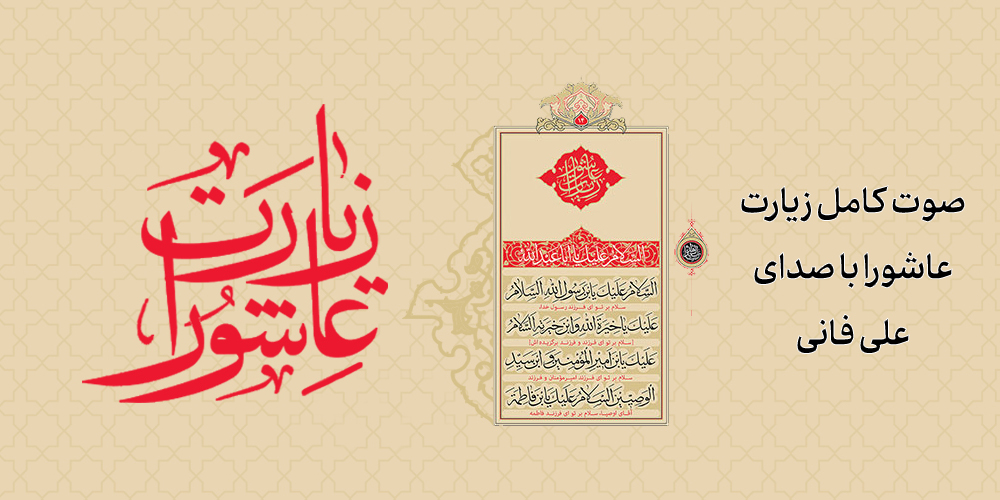 صوت کامل زیارت
عاشورا با صدای
علی فانی
زیارت
عاشورا
۱۲
زیارت عاشورا
السلام علیک یا ابا عبدالله
اَلسَّلامُ عَلَیْكَ یَابْنَ رَسُولِ اللهِ اَلسَّلامُ
سلام بر تو ای فرزند رسول خدا،
عَلَیْكَ یا خِیَرَةَ اللهِ وَابْنَ خِیَرَتِهِ اَلسَّلامُ
[سلام بر تو ای فرزند و فرزند برگزیده‌اش]
عَلَیْكَ یَابْنَ اَمیرِ الْمُؤْمِنینَ وَابْنَ سَیِّدِ
سلام بر تو ای فرزند امیرمؤمنان و فرزند
الْوَصِیّینَ اَلسَّلامُ عَلَیْكَ یَابْنَ فاطِمَةَ
آقای اوصیا، سلام بر تو ای فرزند فاطمه